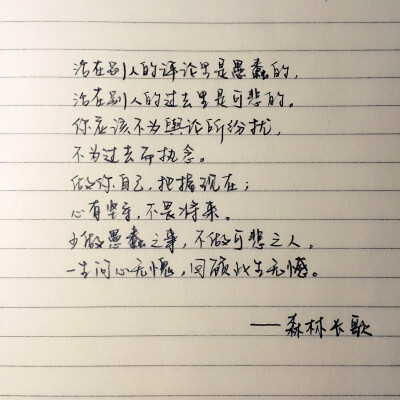 活在别人的评论里是愚蠢的,
活在别人的过去里是可悲的。
你应该不为舆论所纷扰,
不为过去而执念。
做你自己,把握现在;
心有坚守,不畏将来。
少做愚蠢之事,不做可悲之人。
一生问心无愧,回顾此生无憾。
——森林长歌